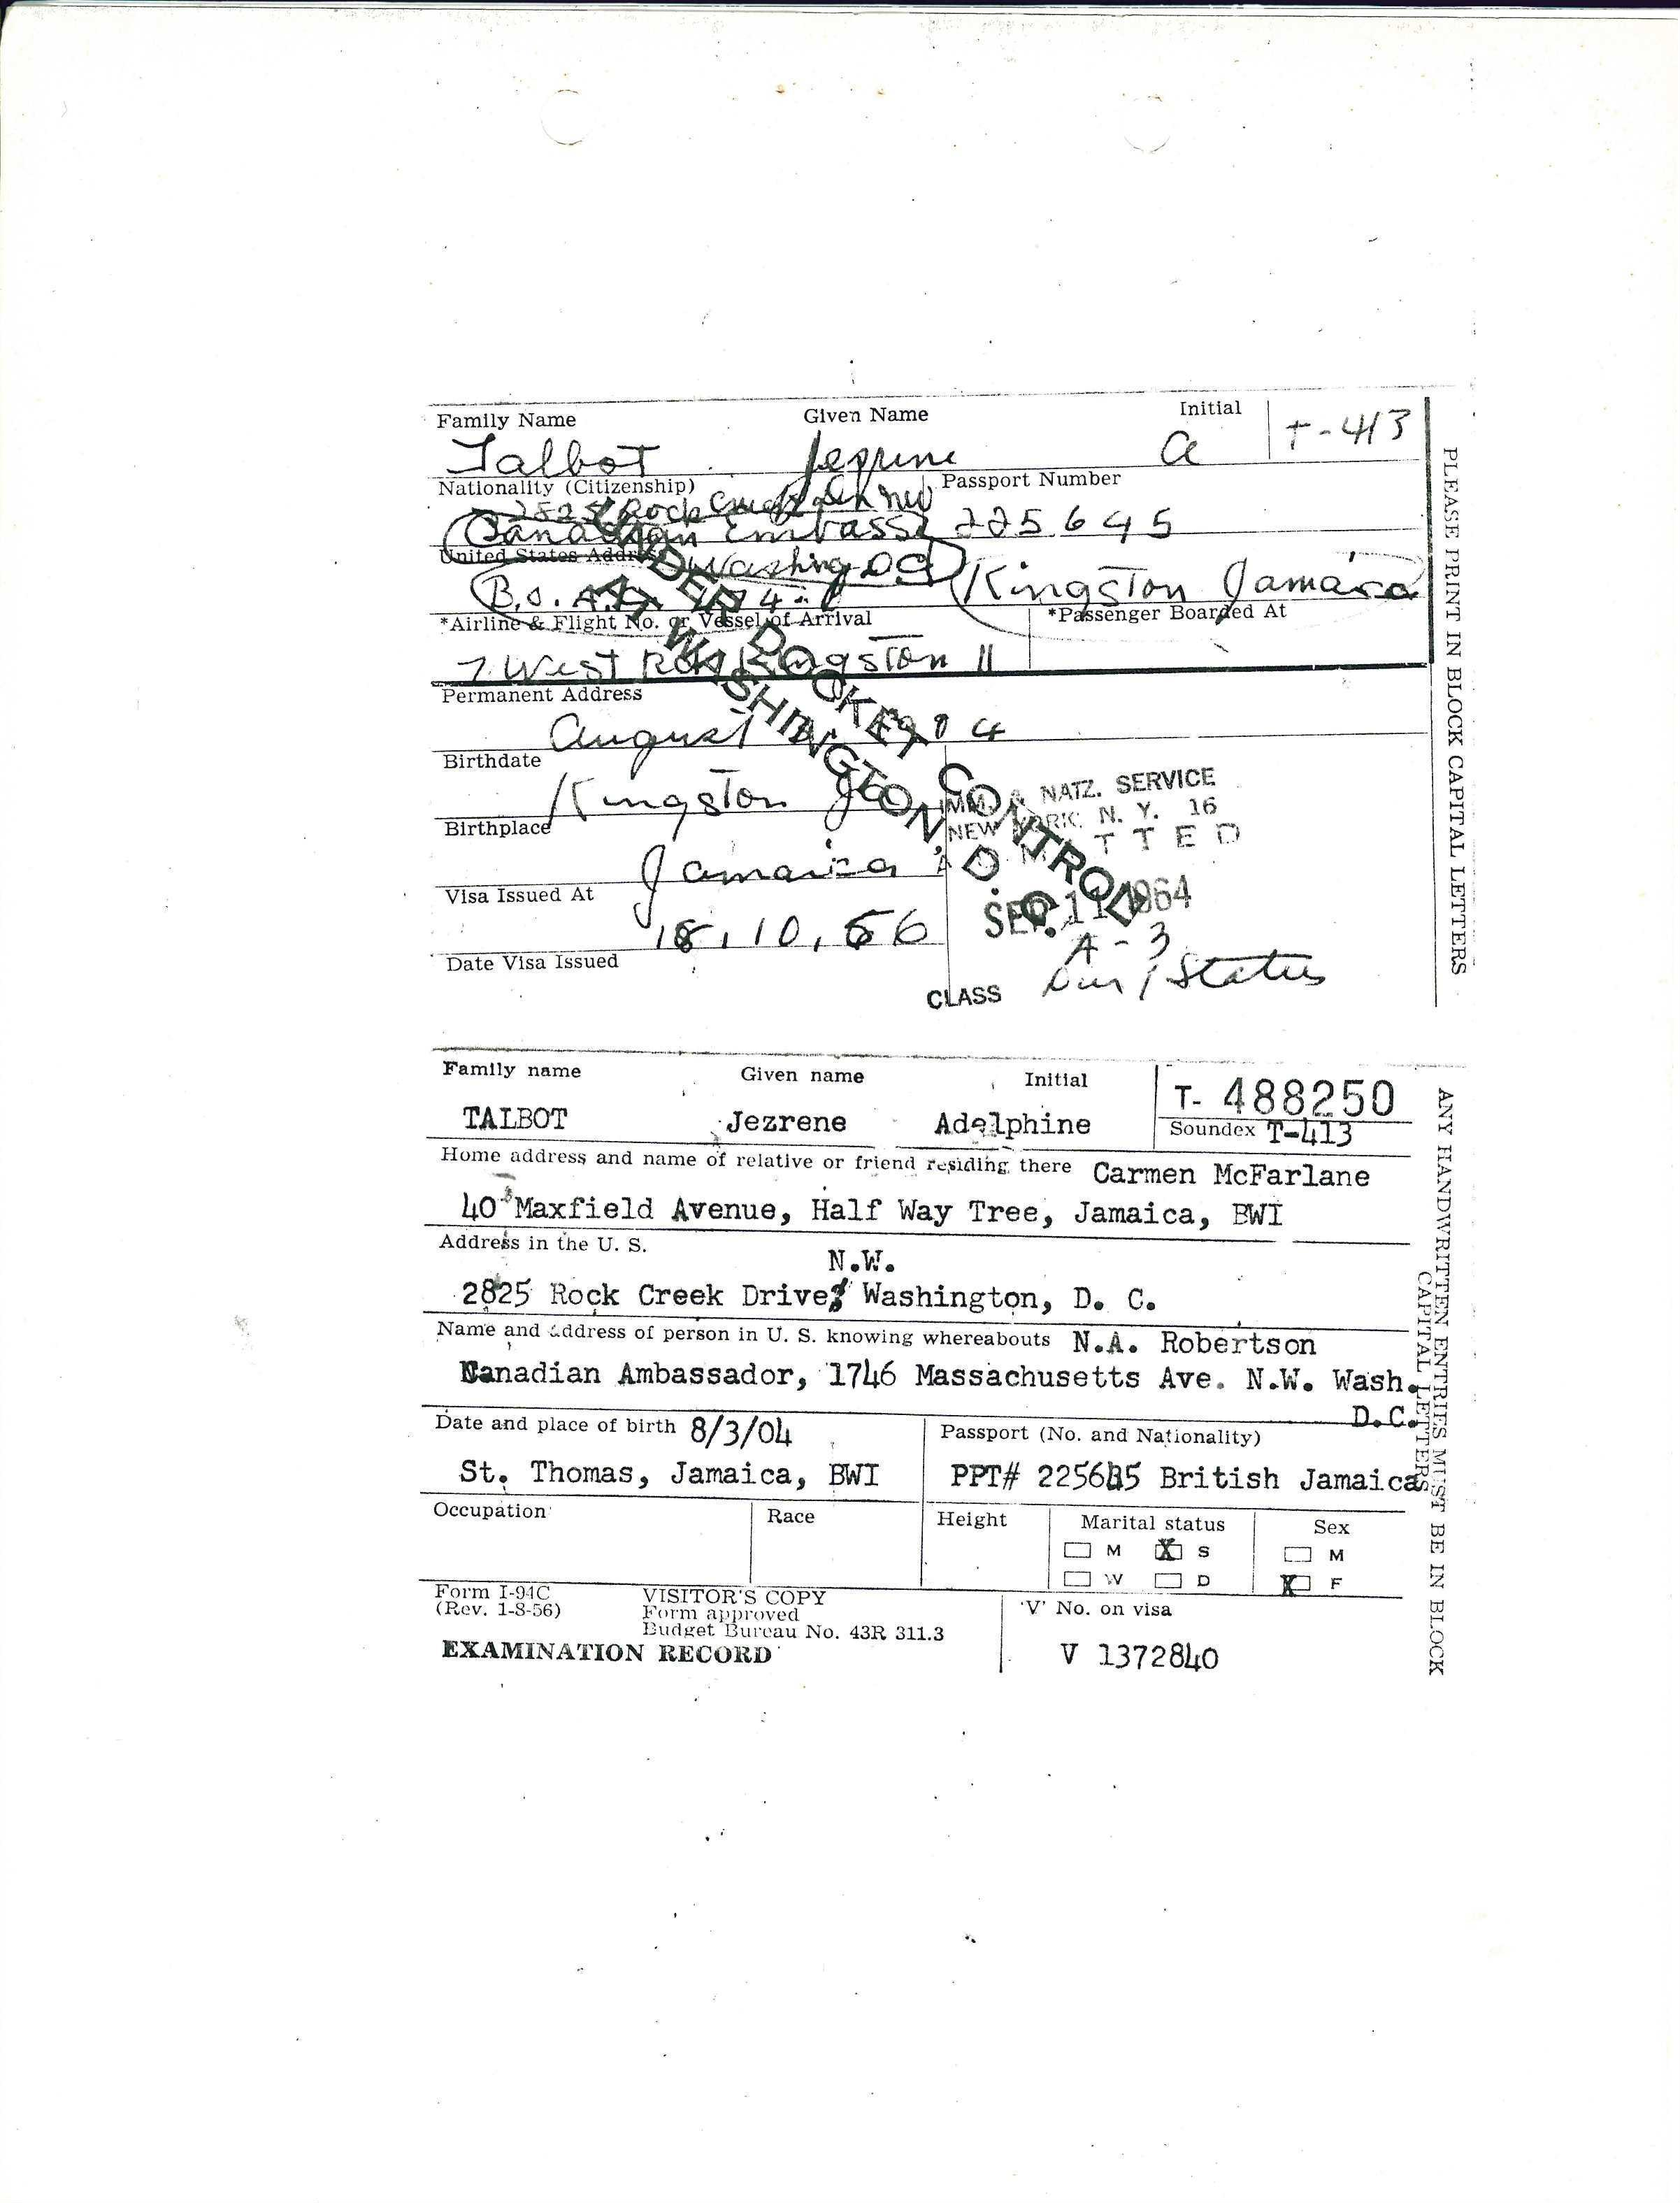 Family Name Given Name Initial
Talbot Jezrene a T-413
Nationality (Citizenship) Passport Number
2825 Rock Creek Dr NW
Canadian Embassy 225645
United States Address Washing DC
B.O.A.C. Kingston Jamaica
*Airline & Flight No. or Vessel of Arrival *Passenger Boarded At
7 West Rd Kingston 11
Permanent Address
August 04
Birthdate
Kingston
Birthplace
Jamaica
Visa Issued At
18.10.56
Date Visa Issued
UNDER DOCKET CONTROL
AT WASHINGTON, D. C.
IMM. & NATZ. SERVICE
NEW YORK, N. Y. 16
ADMITTED
SEP 11 1964
A-3
CLASS Dur/Status
PLEASE PRINT IN BLOCK CAPITAL LETTERS
Family name Given name Initial
TALBOT Jezrene Adelphine T- 488250
Soundex T-413
Home address and name of relative or friend residing there Carmen McFarlane
40 Maxfield Avenue, Half Way Tree, Jamaica, BWI
Address in the U. S.
N.W.
2825 Rock Creek Drive, Washington, D. C.
Name and address of person in U. S. knowing whereabouts N.A. Robertson
Canadian Ambassador, 1746 Massachusetts Ave. N.W. Wash.
D.C.
Date and place of birth 8/3/04 Passport (No. and Nationality)
St. Thomas, Jamaica, BWI PPT# 225645 British Jamaica
Occupation Race Height Marital status Sex
M X S M
W D X F
Form I-94C VISITOR'S COPY 'V' No. on visa
(Rev. 1-8-56) Form approved
Budget Bureau No. 43R 311.3
EXAMINATION RECORD V 1372840
ANY HANDWRITTEN ENTRIES MUST BE IN BLOCK
CAPITAL LETTERS